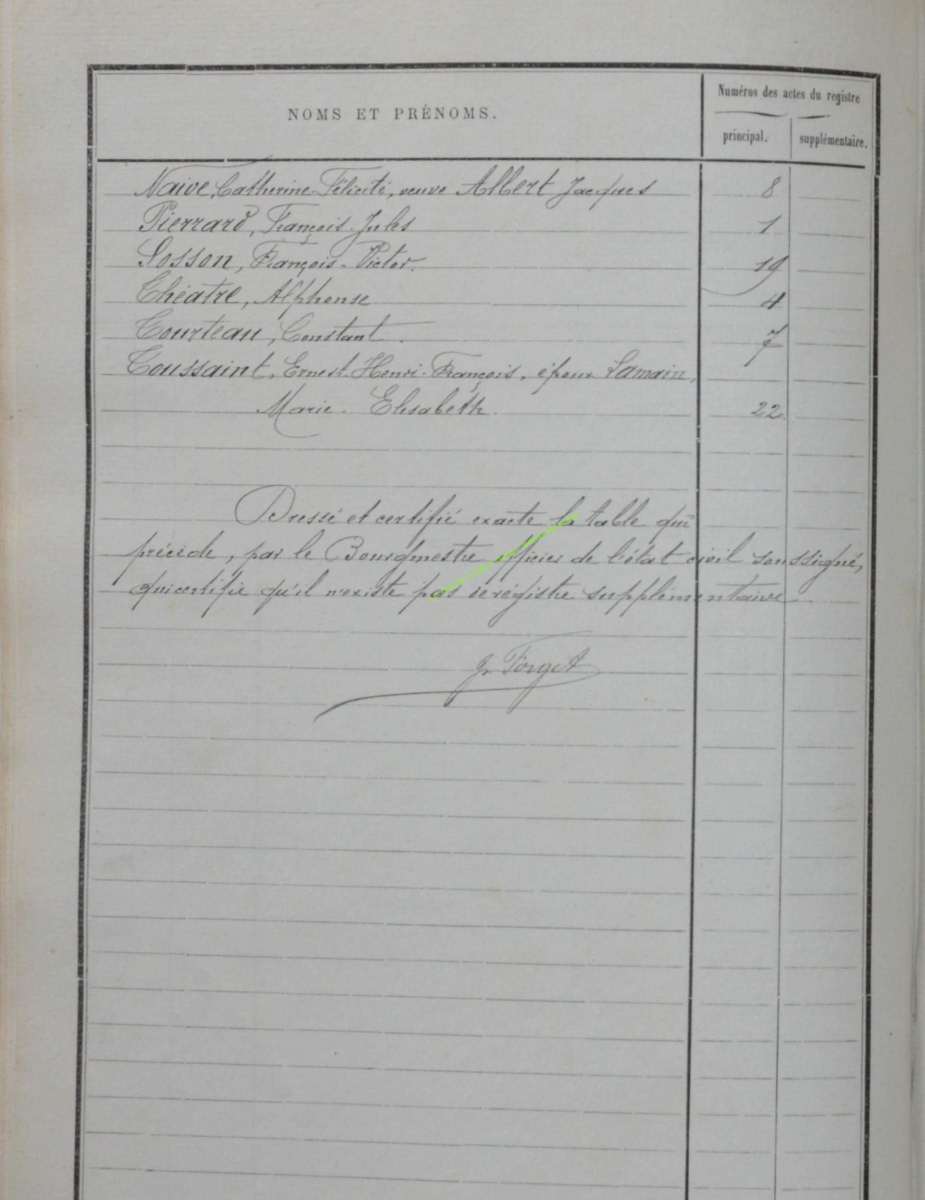 NOMS ET PRÉNOMS.
Numéros des actes du registre
principal.
supplémentaire.
Naive, Catherine Félicité, veuve Albert Jacques 8
Pierrard, François-Jules 1
Sosson, François-Victor. 19
Théatre, Alphonse 4
Tourteau, Constant. 7
Toussaint, Ernest-Henri-François, époux Lamain,
Marie-Elisabeth. 22
Dressé et certifié exacte la table qui
précède, par le Bourgmestre officier de l'état civil soussigné,
qui certifie qu'il n'existe pas de régistre supplémentaire
J. Forget